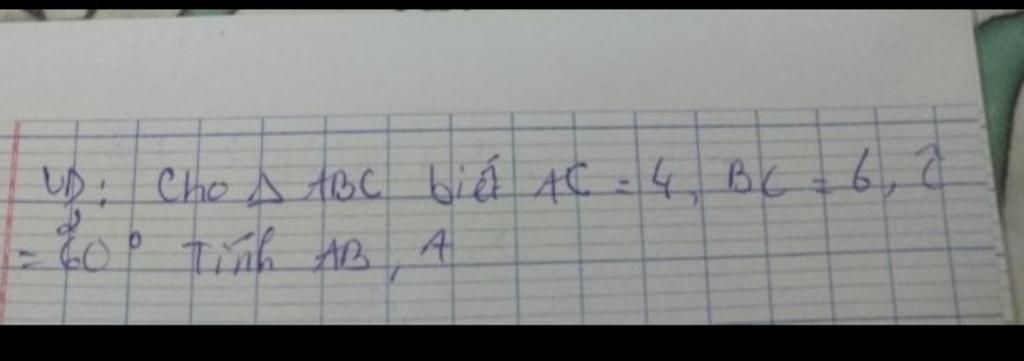 VD: Cho Δ ABC biết AC = 4, BC = 6, Ĉ
= 60° Tính AB, A